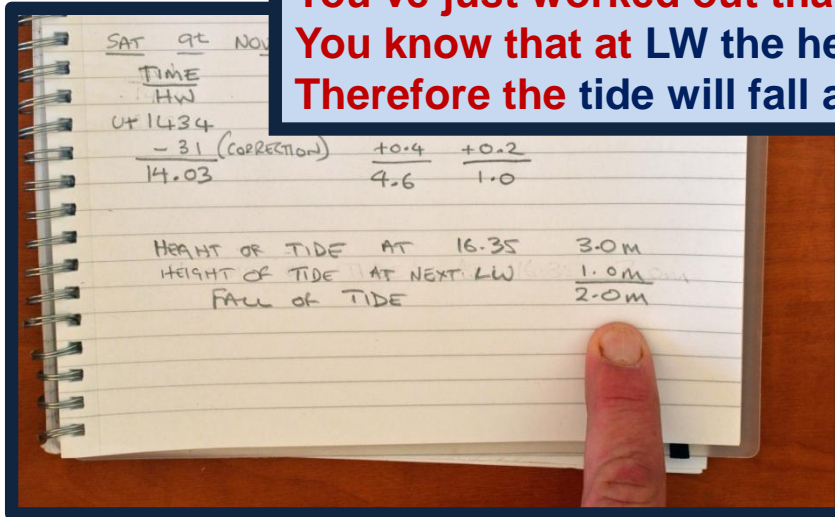 You've just worked out tha
You know that at LW the he
Therefore the tide will fall a
SAT 9t NOV
TIME
HW
UT 1434
- 31 (CORRECTION) +0.4 +0.2
14.03 4.6 1.0
HEIGHT OF TIDE AT 16.35 3.0M
HEIGHT OF TIDE AT NEXT LW 1.0M
FALL OF TIDE 2.0M